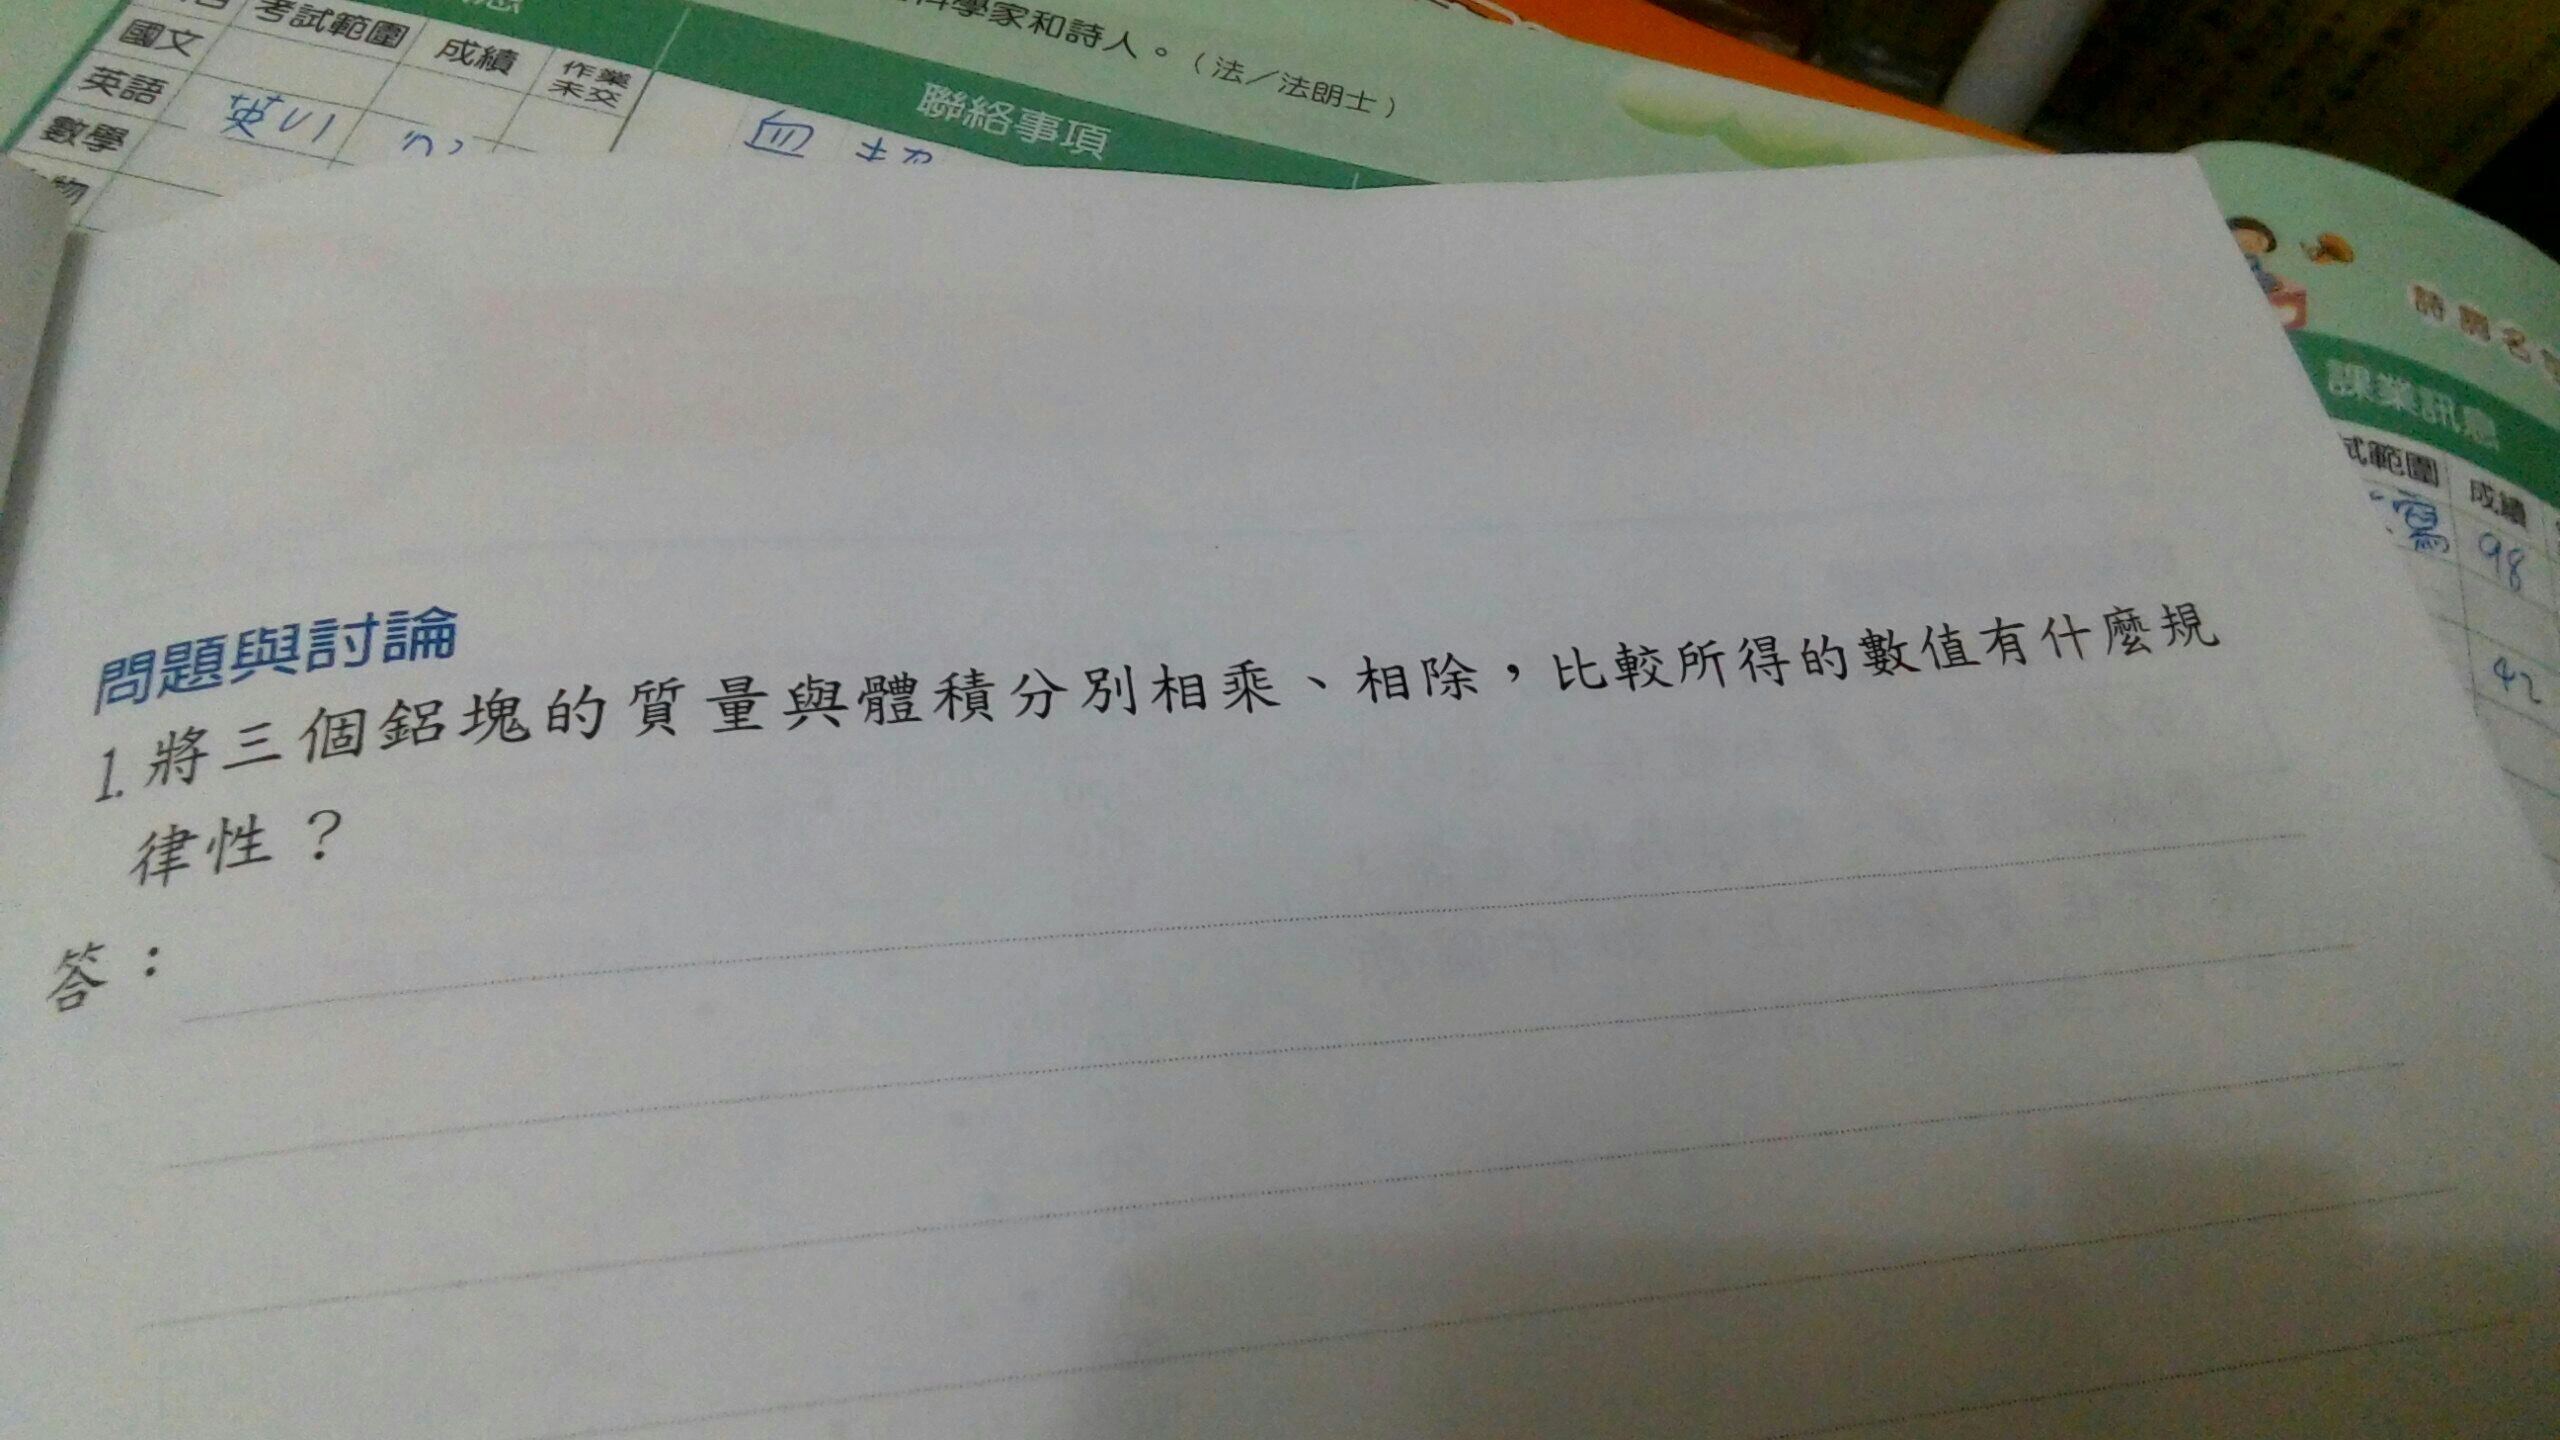 考試範圍
成績
作業
未交
國文
英語
數學
物
科學家和詩人。（法／法朗士）
聯絡事項
課業訊息
式範圍
成績
98
42
問題與討論
1.將三個鋁塊的質量與體積分別相乘、相除，比較所得的數值有什麼規
律性？
答：